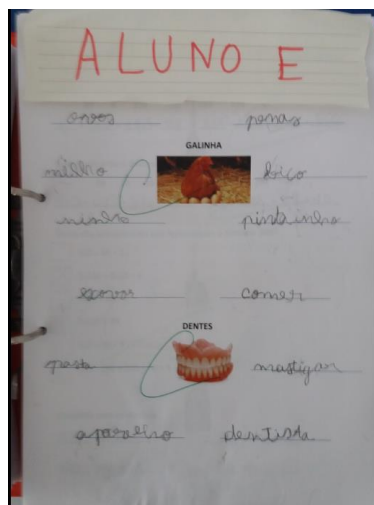 ALUNO E
ovos penas
GALINHA
milho bico
ninho pintainho
escovar comer
DENTES
pasta mastigar
aparelho dentista